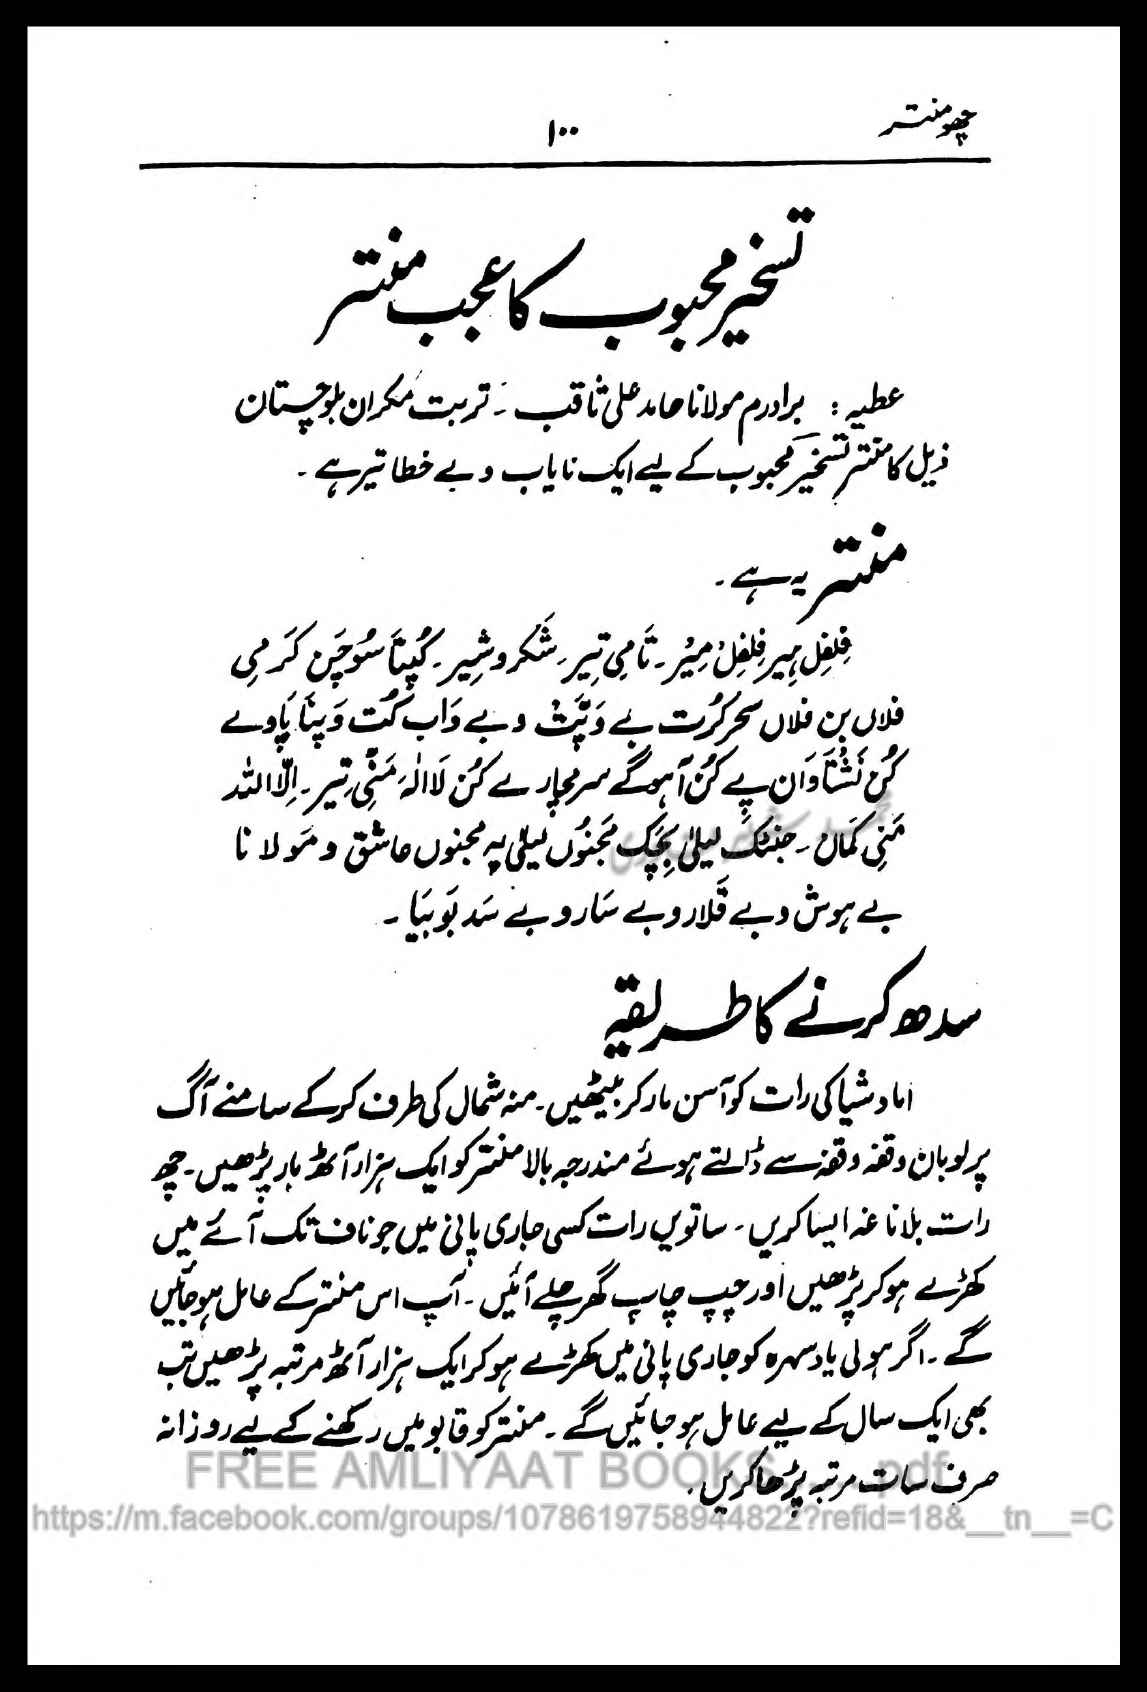 چھو منتر
۱۰۰
تسخیر محبوب کا عجب منتر
عطیہ : برادرم مولانا حامد علی ثاقب ۔ تربت مکران بلوچستان
ذیل کا منتر تسخیر محبوب کے لیے ایک نایاب و بے خطا تیر ہے ۔
منتر یہ ہے ۔
فِلفِل ہِیر فِلفِلُ مِیْر ۔ تَامِی تِیر ۔ شَکر و شِیر ۔ کُپتَا سُوچَن کَرمِی
فلاں بن فلاں سحر کُرت بے وَپّتْ و بے وَاب کُت وَپِتَا پَاوے
کُنْ نَشْتَاوَان پِے کُن آ ہوگے سر مچارے کُن لَا الٰہَ مَنِّی تِیر ۔ اِلّا اللہ
مَنِی کَمَان ۔ جنتک لیلیٰ بِچَک مَجنُوں لیلیٰ پہ مجنوں عاشق و مَولانا
بے ہوش و بے قَلار و بے سَار و بے سَد بَو بِیَا ۔
سدھ کرنے کا طریقہ
اماوشیا کی رات کو آسن مار کر بیٹھیں ۔ منہ شمال کی طرف کر کے سامنے آگ
پر لوبان وقفہ وقفہ سے ڈالتے ہوئے مندرجہ بالا منتر کو ایک ہزار آٹھ بار پڑھیں ۔ چھ
رات بلا ناغہ ایسا کریں ۔ ساتویں رات کسی جاری پانی میں جو ناف تک آئے میں
کھڑے ہو کر پڑھیں اور چپ چاپ گھر چلے آئیں ۔ آپ اس منتر کے عامل ہو جائیں
گے ۔ اگر ہولی یا دسہرہ کو جاری پانی میں کھڑے ہو کر ایک ہزار آٹھ مرتبہ پڑھیں تب
بھی ایک سال کے لیے عامل ہو جائیں گے ۔ منتر کو قابو میں رکھنے کے لیے روزانہ
صرف سات مرتبہ پڑھا کریں ۔
FREE AMLIYAAT BOOKS ....pdf
https://m.facebook.com/groups/1078619758944822?refid=18&__tn__=C